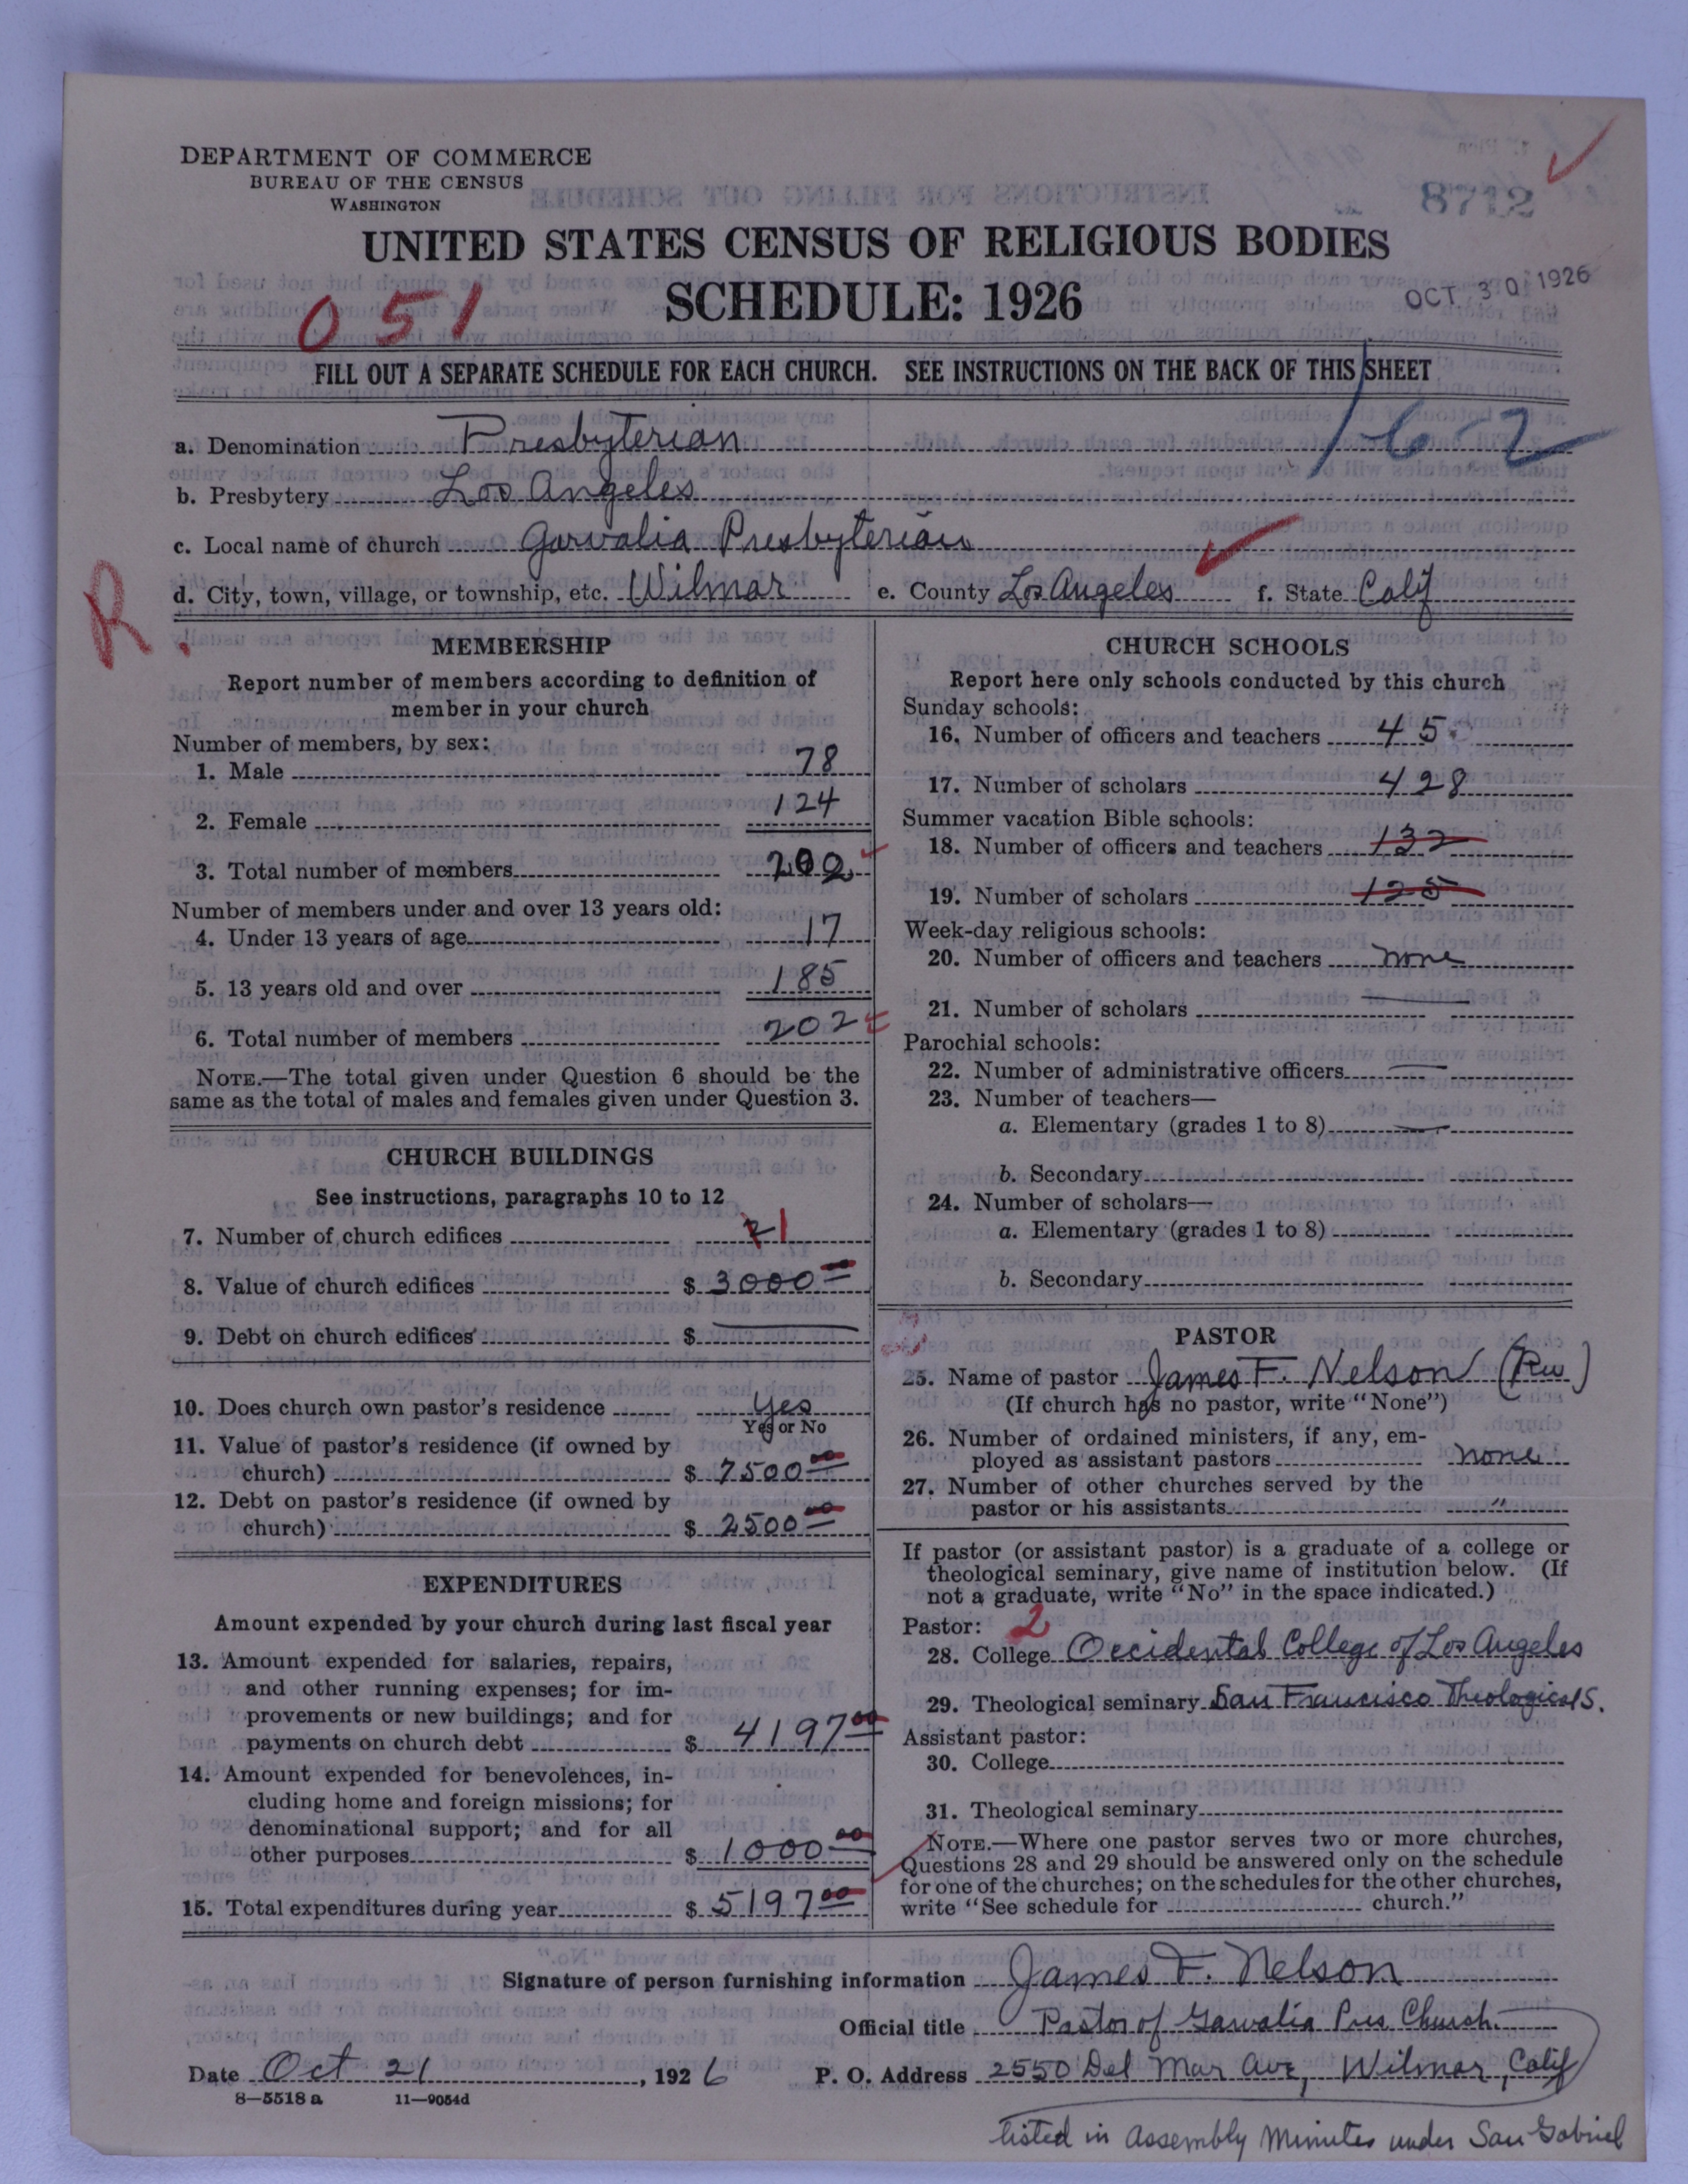 DEPARTMENT OF COMMERCE
BUREAU OF THE CENSUS
WASHINGTON
8712
UNITED STATES CENSUS OF RELIGIOUS BODIES
SCHEDULE: 1926
OCT 30 1926
051
FILL OUT A SEPARATE SCHEDULE FOR EACH CHURCH. SEE INSTRUCTIONS ON THE BACK OF THIS SHEET
162
a. Denomination Presbyterian
b. Presbytery Los Angeles
c. Local name of church Garvalia Presbyterian
d. City, town, village, or township, etc. Wilmar e. County Los Angeles f. State Calif
R.
MEMBERSHIP
Report number of members according to definition of
member in your church
Number of members, by sex:
1. Male 78
2. Female 124
3. Total number of members 202
Number of members under and over 13 years old:
4. Under 13 years of age 17
5. 13 years old and over 185
6. Total number of members 202
NOTE.—The total given under Question 6 should be the
same as the total of males and females given under Question 3.
CHURCH BUILDINGS
See instructions, paragraphs 10 to 12
7. Number of church edifices 1
8. Value of church edifices $ 3000 00
9. Debt on church edifices $
10. Does church own pastor's residence Yes
Yes or No
11. Value of pastor's residence (if owned by
church) $ 7500 00
12. Debt on pastor's residence (if owned by
church) $ 2500 00
EXPENDITURES
Amount expended by your church during last fiscal year
13. Amount expended for salaries, repairs,
and other running expenses; for im-
provements or new buildings; and for
payments on church debt $ 4197 00
14. Amount expended for benevolences, in-
cluding home and foreign missions; for
denominational support; and for all
other purposes $ 1000 00
15. Total expenditures during year $ 5197 00
CHURCH SCHOOLS
Report here only schools conducted by this church
Sunday schools:
16. Number of officers and teachers 45
17. Number of scholars 428
Summer vacation Bible schools:
18. Number of officers and teachers 132
19. Number of scholars 125
Week-day religious schools:
20. Number of officers and teachers none
21. Number of scholars
Parochial schools:
22. Number of administrative officers
23. Number of teachers—
a. Elementary (grades 1 to 8)
b. Secondary
24. Number of scholars—
a. Elementary (grades 1 to 8)
b. Secondary
PASTOR
25. Name of pastor James F. Nelson (Rev)
(If church has no pastor, write "None")
26. Number of ordained ministers, if any, em-
ployed as assistant pastors none
27. Number of other churches served by the
pastor or his assistants "
If pastor (or assistant pastor) is a graduate of a college or
theological seminary, give name of institution below. (If
not a graduate, write "No" in the space indicated.)
Pastor: 2
28. College Occidental College of Los Angeles
29. Theological seminary San Francisco Theological S.
Assistant pastor:
30. College
31. Theological seminary
NOTE.—Where one pastor serves two or more churches,
Questions 28 and 29 should be answered only on the schedule
for one of the churches; on the schedules for the other churches,
write "See schedule for church."
Signature of person furnishing information James F. Nelson
Official title Pastor of Garvalia Pres Church.
Date Oct 21, 1926 P. O. Address 2550 Del Mar Ave, Wilmar, Calif
8—5518 a 11—9054d
listed in Assembly Minutes under San Gabriel